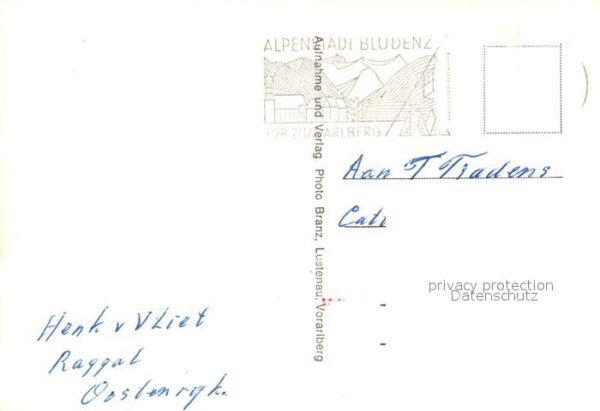 ALPENSTADT BLUDENZ
VORARLBERG
Aufnahme und Verlag Photo Branz, Lustenau, Vorarlberg
Aan T Tradens
privacy protection
Datenschutz
Henk v Vliet
Raggal
Oostenrijk.